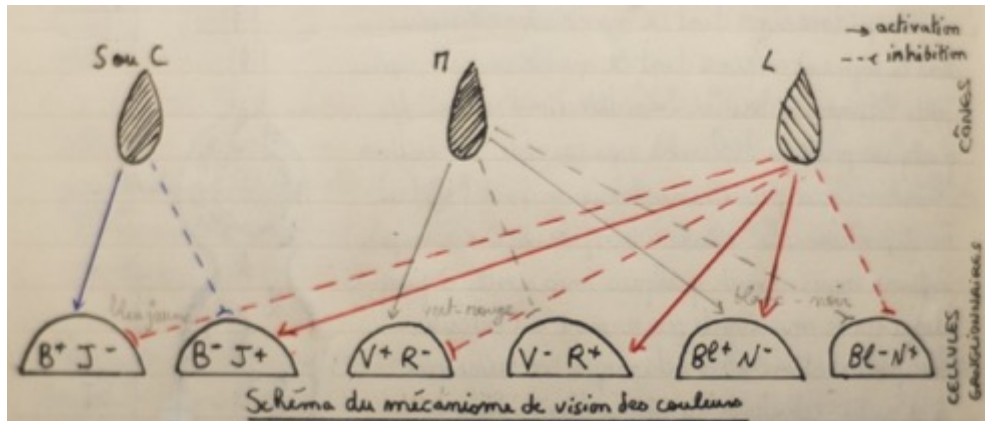 S ou C
M
L
→ activation
--< inhibition
CÔNES
bleu jaune
vert-rouge
blanc-noir
B+ J-
B- J+
V+ R-
V- R+
Bl+ N-
Bl- N+
CELLULES
GANGLIONNAIRES
Schéma du mécanisme de vision des couleurs